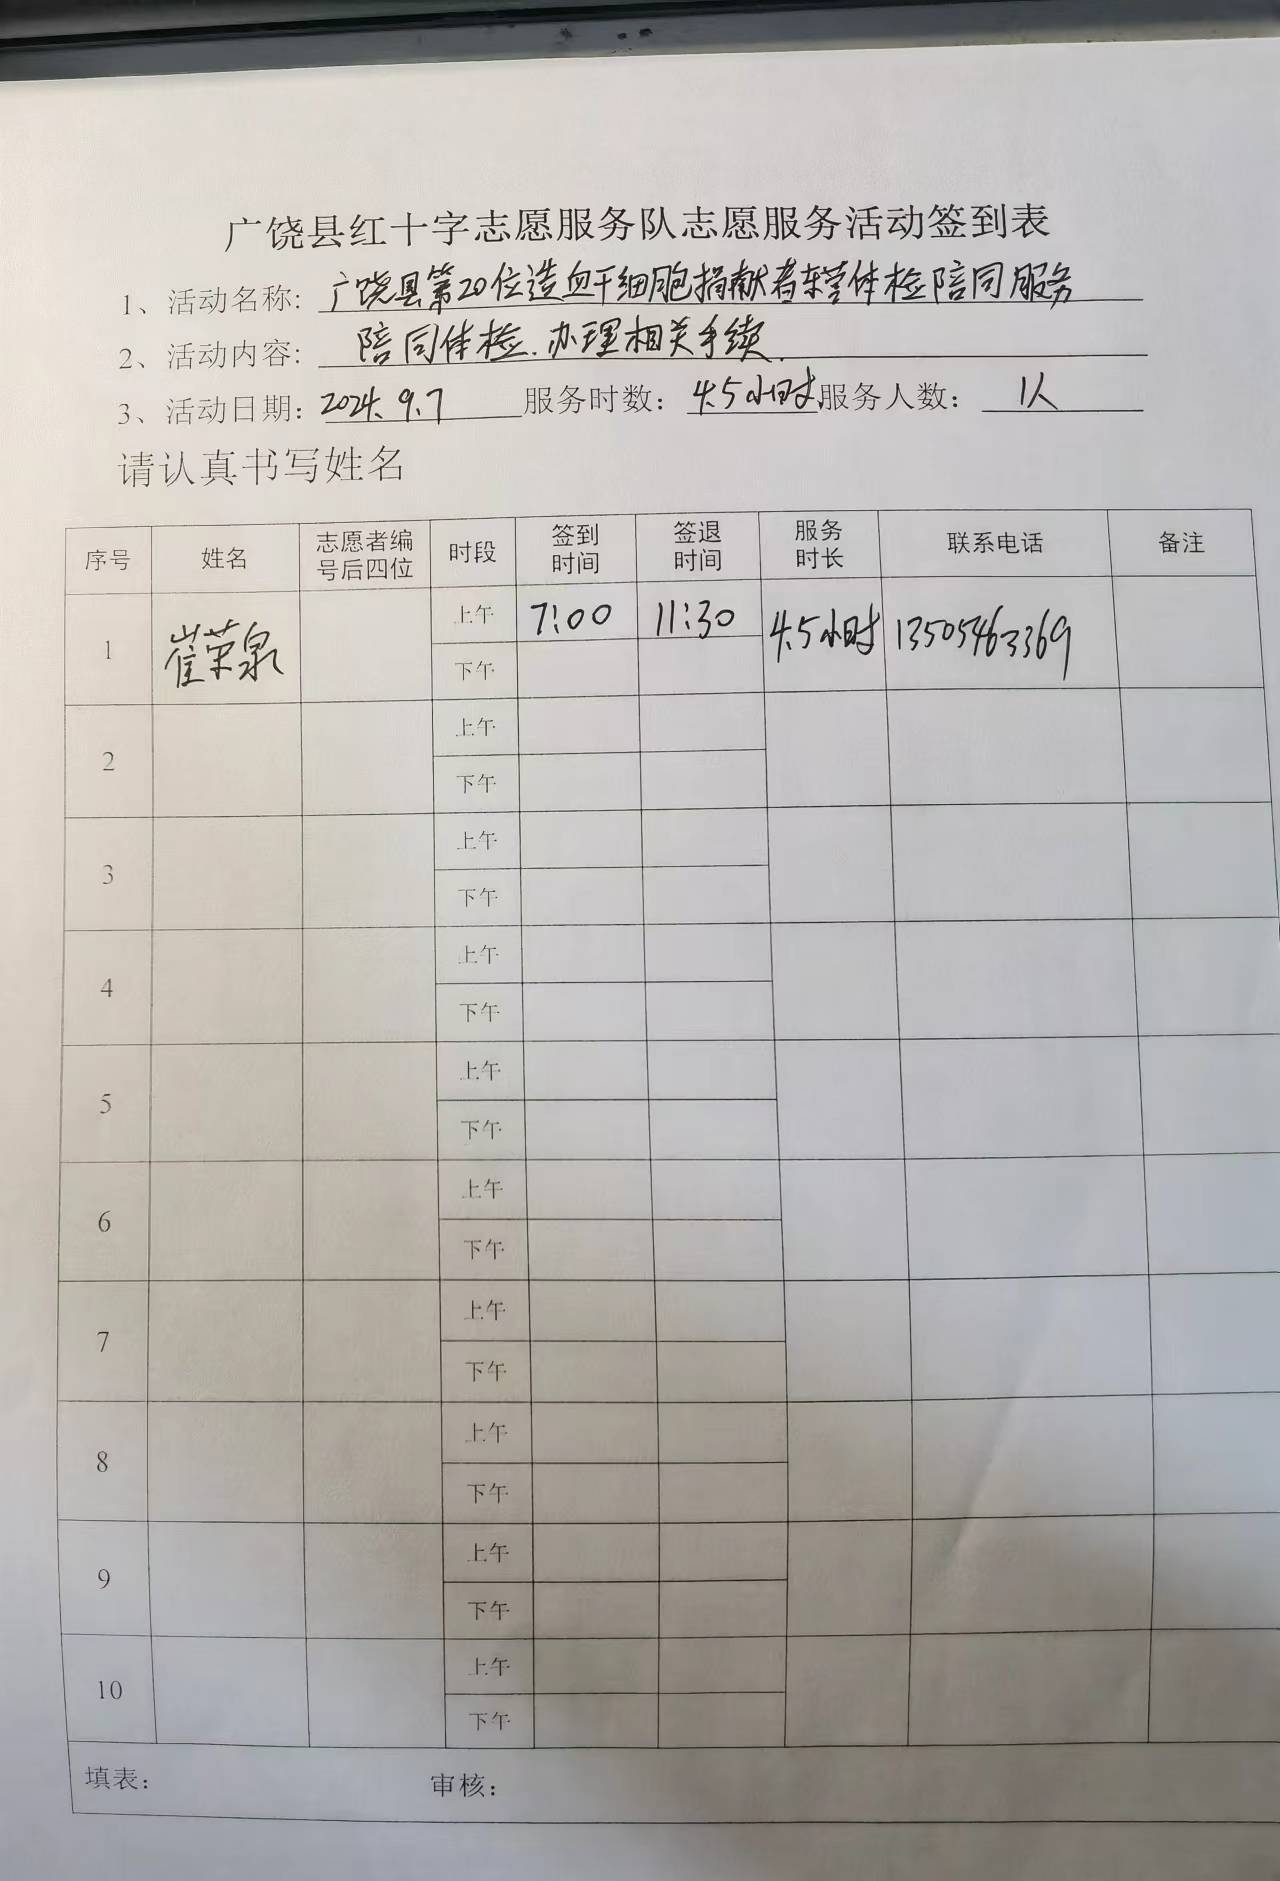 广饶县红十字志愿服务队志愿服务活动签到表
1、活动名称: 广饶县第20位造血干细胞捐献者东营体检陪同服务
2、活动内容: 陪同体检、办理相关手续.
3、活动日期: 2024.9.7 服务时数: 4.5小时 服务人数: 1人
请认真书写姓名
序号 姓名 志愿者编号后四位 时段 签到时间 签退时间 服务时长 联系电话 备注
1 崔荣泉 上午 7:00 11:30 4.5小时 13505463369
下午
2 上午
下午
3 上午
下午
4 上午
下午
5 上午
下午
6 上午
下午
7 上午
下午
8 上午
下午
9 上午
下午
10 上午
下午
填表: 审核: